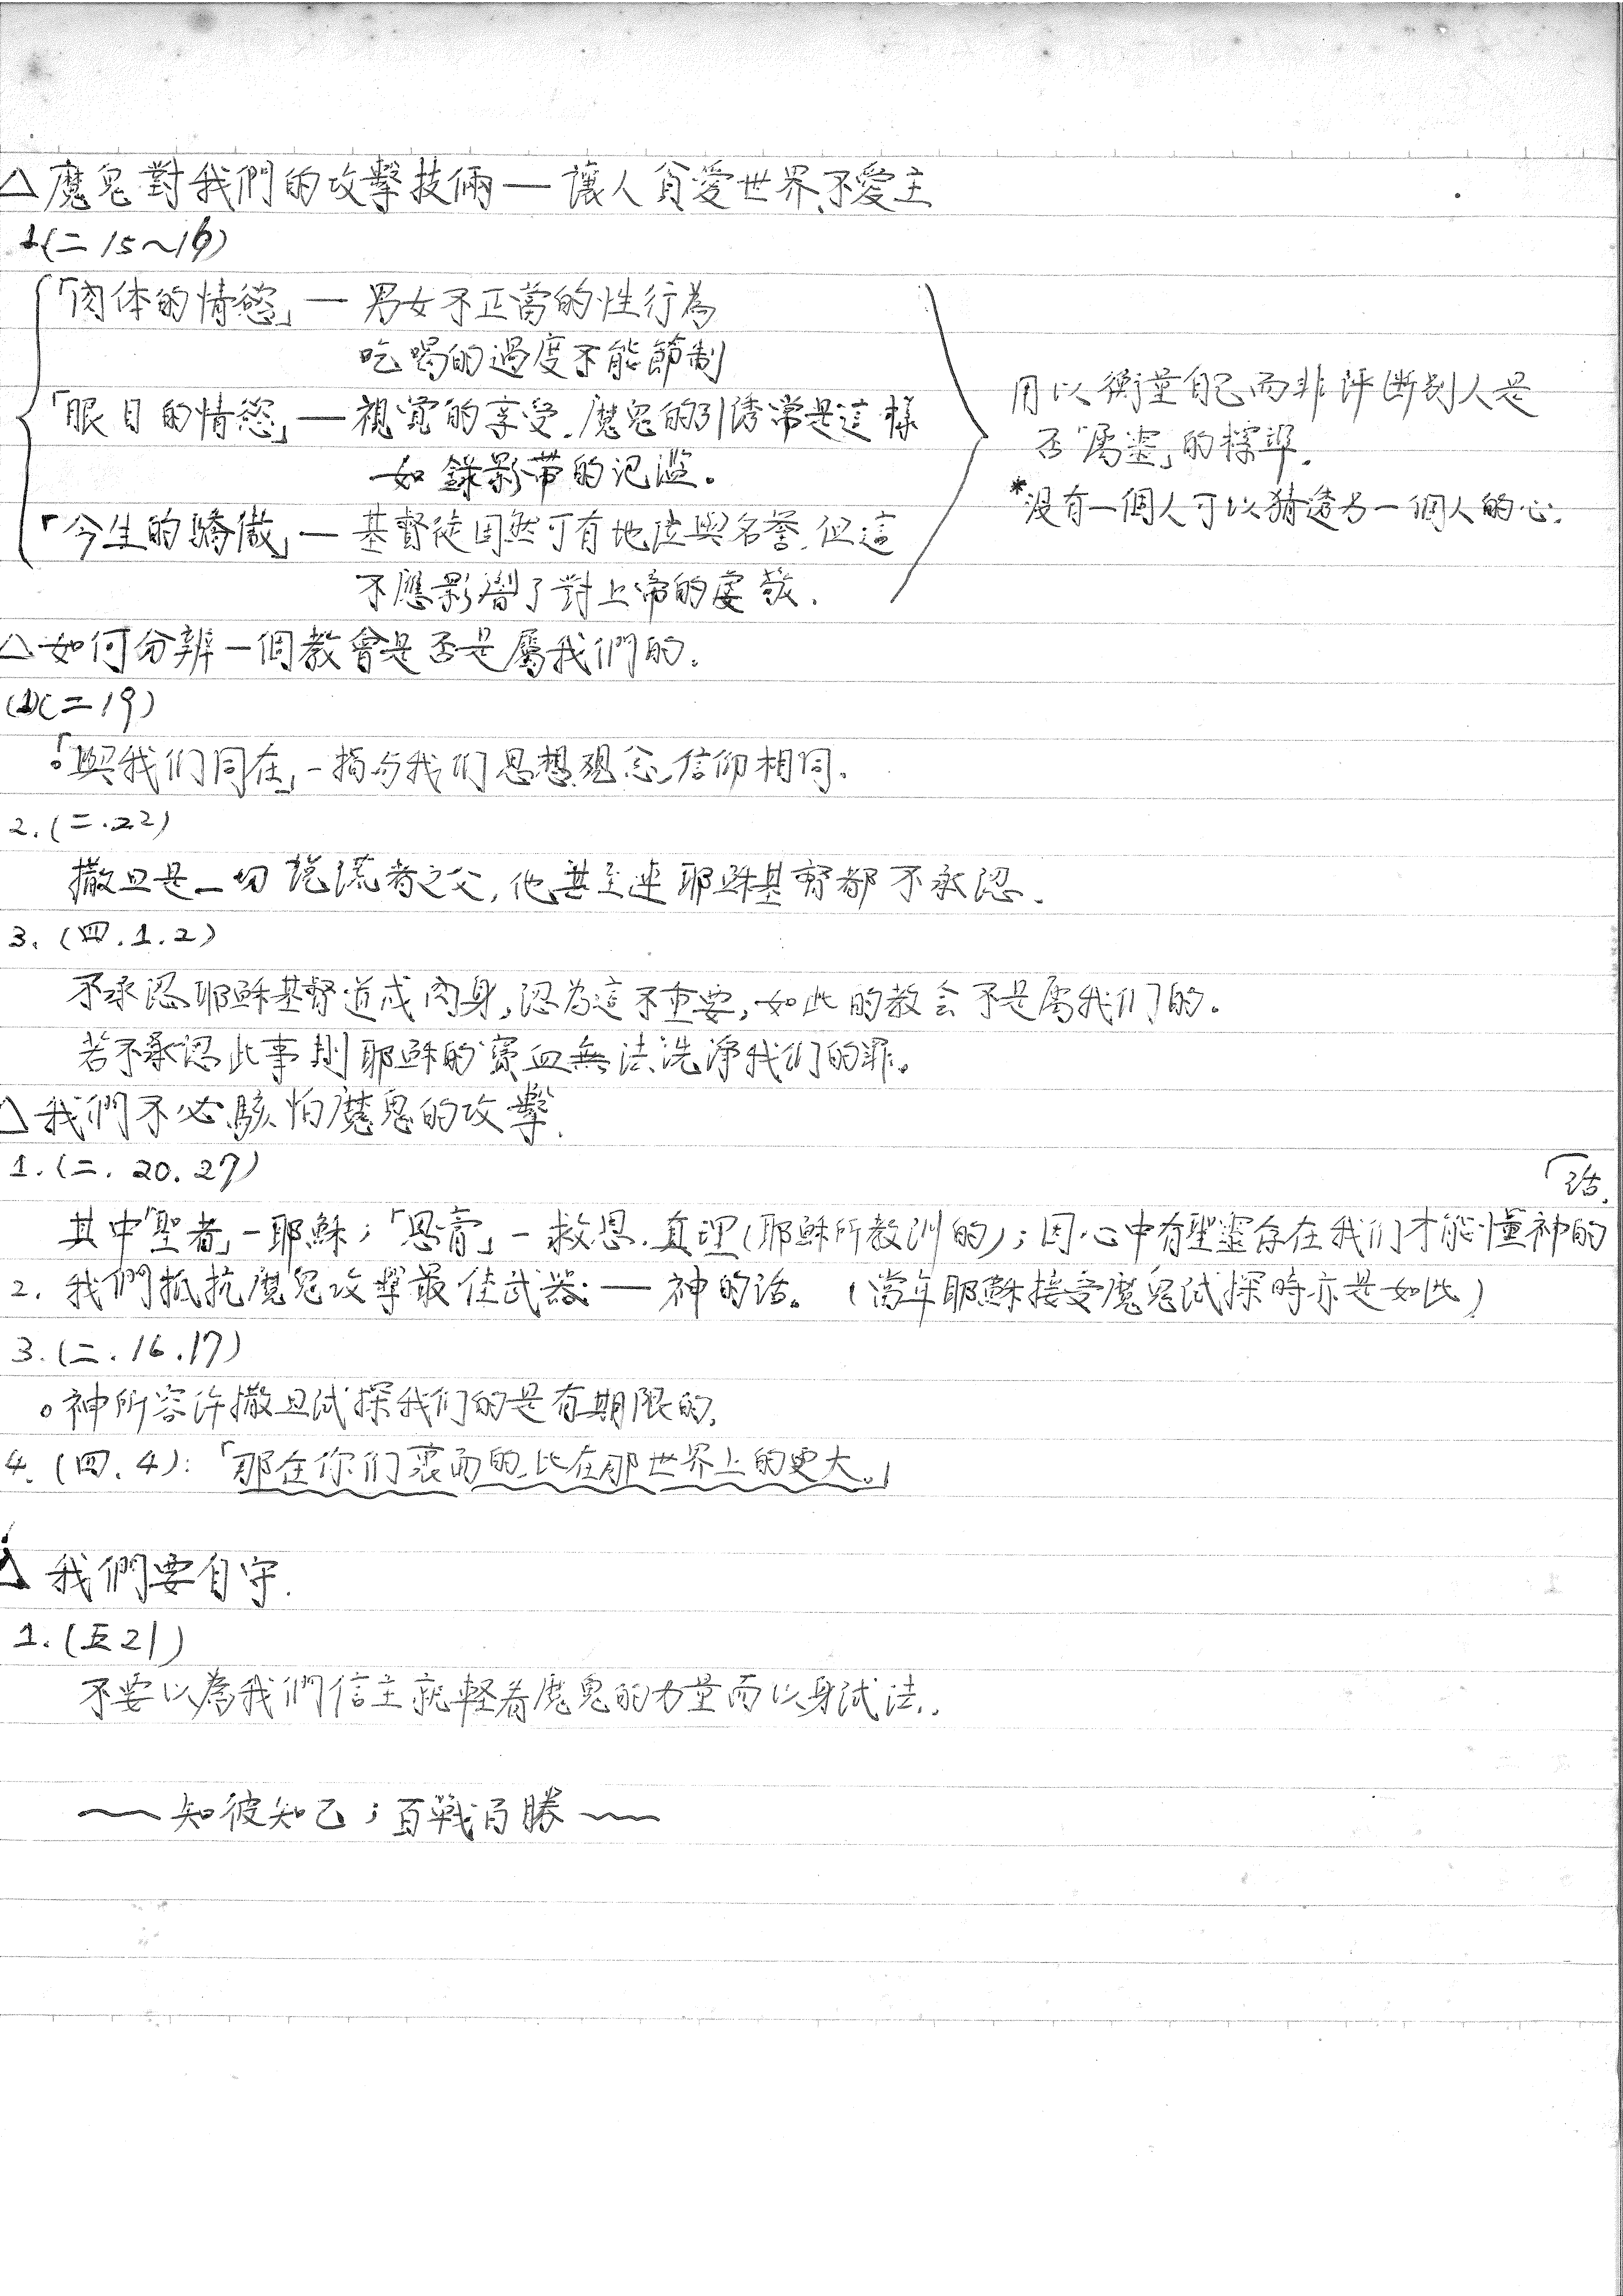 △魔鬼對我們的攻擊技倆—讓人貪愛世界、不愛主
1.(二15~16)
「肉体的情慾」— 男女不正當的性行為
吃喝的過度不能節制
「眼目的情慾」— 視覚的享受.魔鬼的引誘常是這樣
如錄影帶的氾濫。
「今生的驕傲」— 基督徒固然可有地位與名誉.但這
不應影響了對上帝的虔敬.
用以衡量自己而非评断别人是
否「属灵」的標準.
*沒有一個人可以猜透另一個人的心.
△如何分辨一個教會是否是屬我們的。
(1)(二19)
。「與我们同在」-指与我们思想观念、信仰相同.
2.(二.22)
撒旦是一切說謊者之父,他甚至连耶穌基督都不承認.
3.(四.1.2)
不承認耶穌基督道成肉身,認为這不重要,如此的教会不是屬我们的.
若不承認此事則耶穌的寶血無法洗淨我们的罪。
△我們不必駭怕魔鬼的攻擊.
1.(二.20.27)
其中「聖者」-耶穌;「恩膏」-救恩.真理(耶穌所教訓的);因心中有聖靈存在我们才能懂神的
话.
2.我們抵抗魔鬼攻擊最佳武器—神的话。(當年耶穌接受魔鬼试探時亦是如此)
3.(二.16.17)
。神所容许撒旦试探我们的是有期限的.
4.(四.4):「那在你们裏面的.比在那世界上的更大。」
△我們要自守.
1.(五21)
不要以為我們信主就軽看魔鬼的力量而以身试法..
~~知彼知己;百戰百勝~~